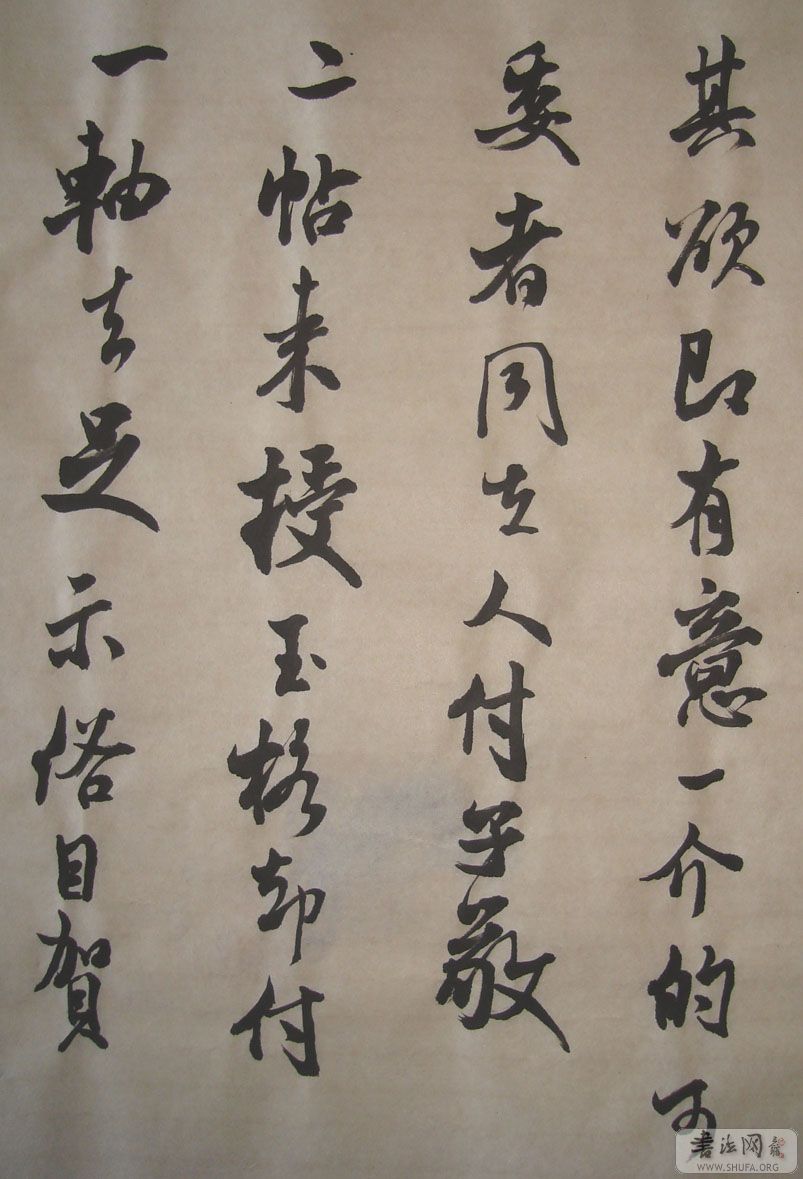 其欲即有意一介的可
委者同去人付子敬
二帖来授玉格却付
一軸去足示俗目賀
書法网
WWW.SHUFA.ORG